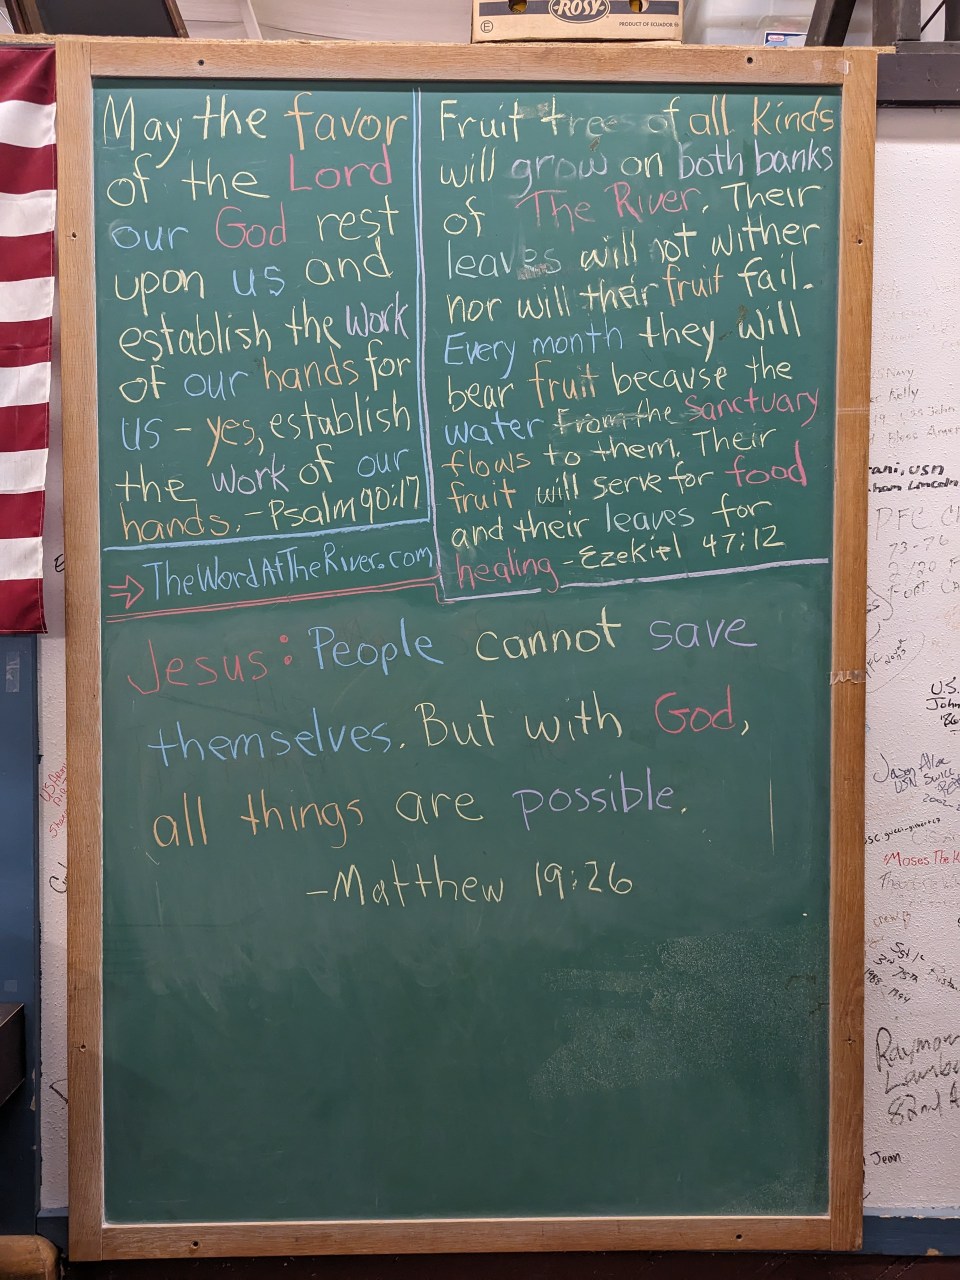 ROSY
PRODUCT OF ECUADOR
May the favor
of the Lord
our God rest
upon us and
establish the work
of our hands for
us - yes, establish
the work of our
hands. - Psalm 90:17
→ TheWordAtTheRiver.com
Fruit trees of all kinds
will grow on both banks
of The River. Their
leaves will not wither
nor will their fruit fail.
Every month they will
bear fruit because the
water from the Sanctuary
flows to them. Their
fruit will serve for food
and their leaves for
healing - Ezekiel 47:12
Jesus: People cannot save
themselves. But with God,
all things are possible.
- Matthew 19:26
Kelly
USS John
Bless
rani, USN
ham Lincoln
PFC
73-76
FORT
U.S.
John
'86
Jason
USN
2002-2
Moses The K
75th
1988
May
Raymon
Lambe
82nd A
Jean